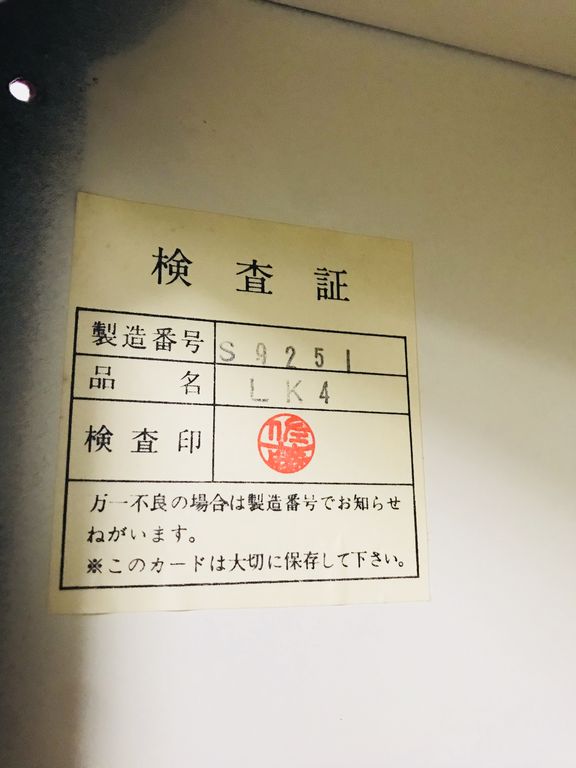 検査証
製造番号 S9251
品名 LK4
検査印 佐藤
万一不良の場合は製造番号でお知らせ
ねがいます。
※このカードは大切に保存して下さい。